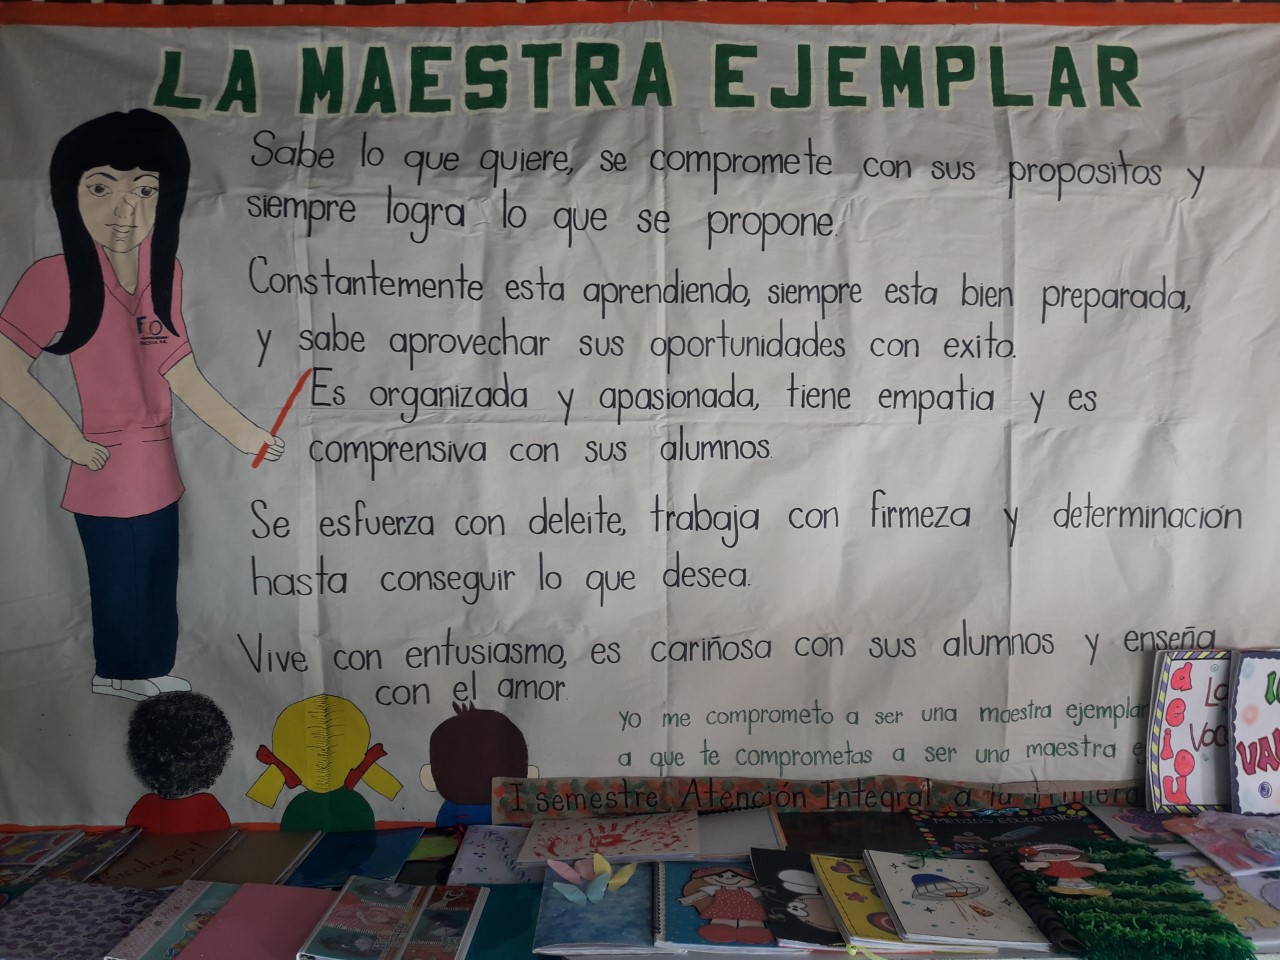 LA MAESTRA EJEMPLAR
Sabe lo que quiere, se compromete con sus propositos y
siempre logra lo que se propone.
Constantemente esta aprendiendo, siempre esta bien preparada,
y sabe aprovechar sus oportunidades con exito.
Es organizada y apasionada, tiene empatia y es
comprensiva con sus alumnos.
Se esfuerza con deleite, trabaja con firmeza y determinación
hasta conseguir lo que desea.
Vive con entusiasmo, es cariñosa con sus alumnos y enseña
con el amor.
yo me comprometo a ser una maestra ejemplar
a que te comprometas a ser una maestra
I semestre Atención Integral a la Primera
a e i o u